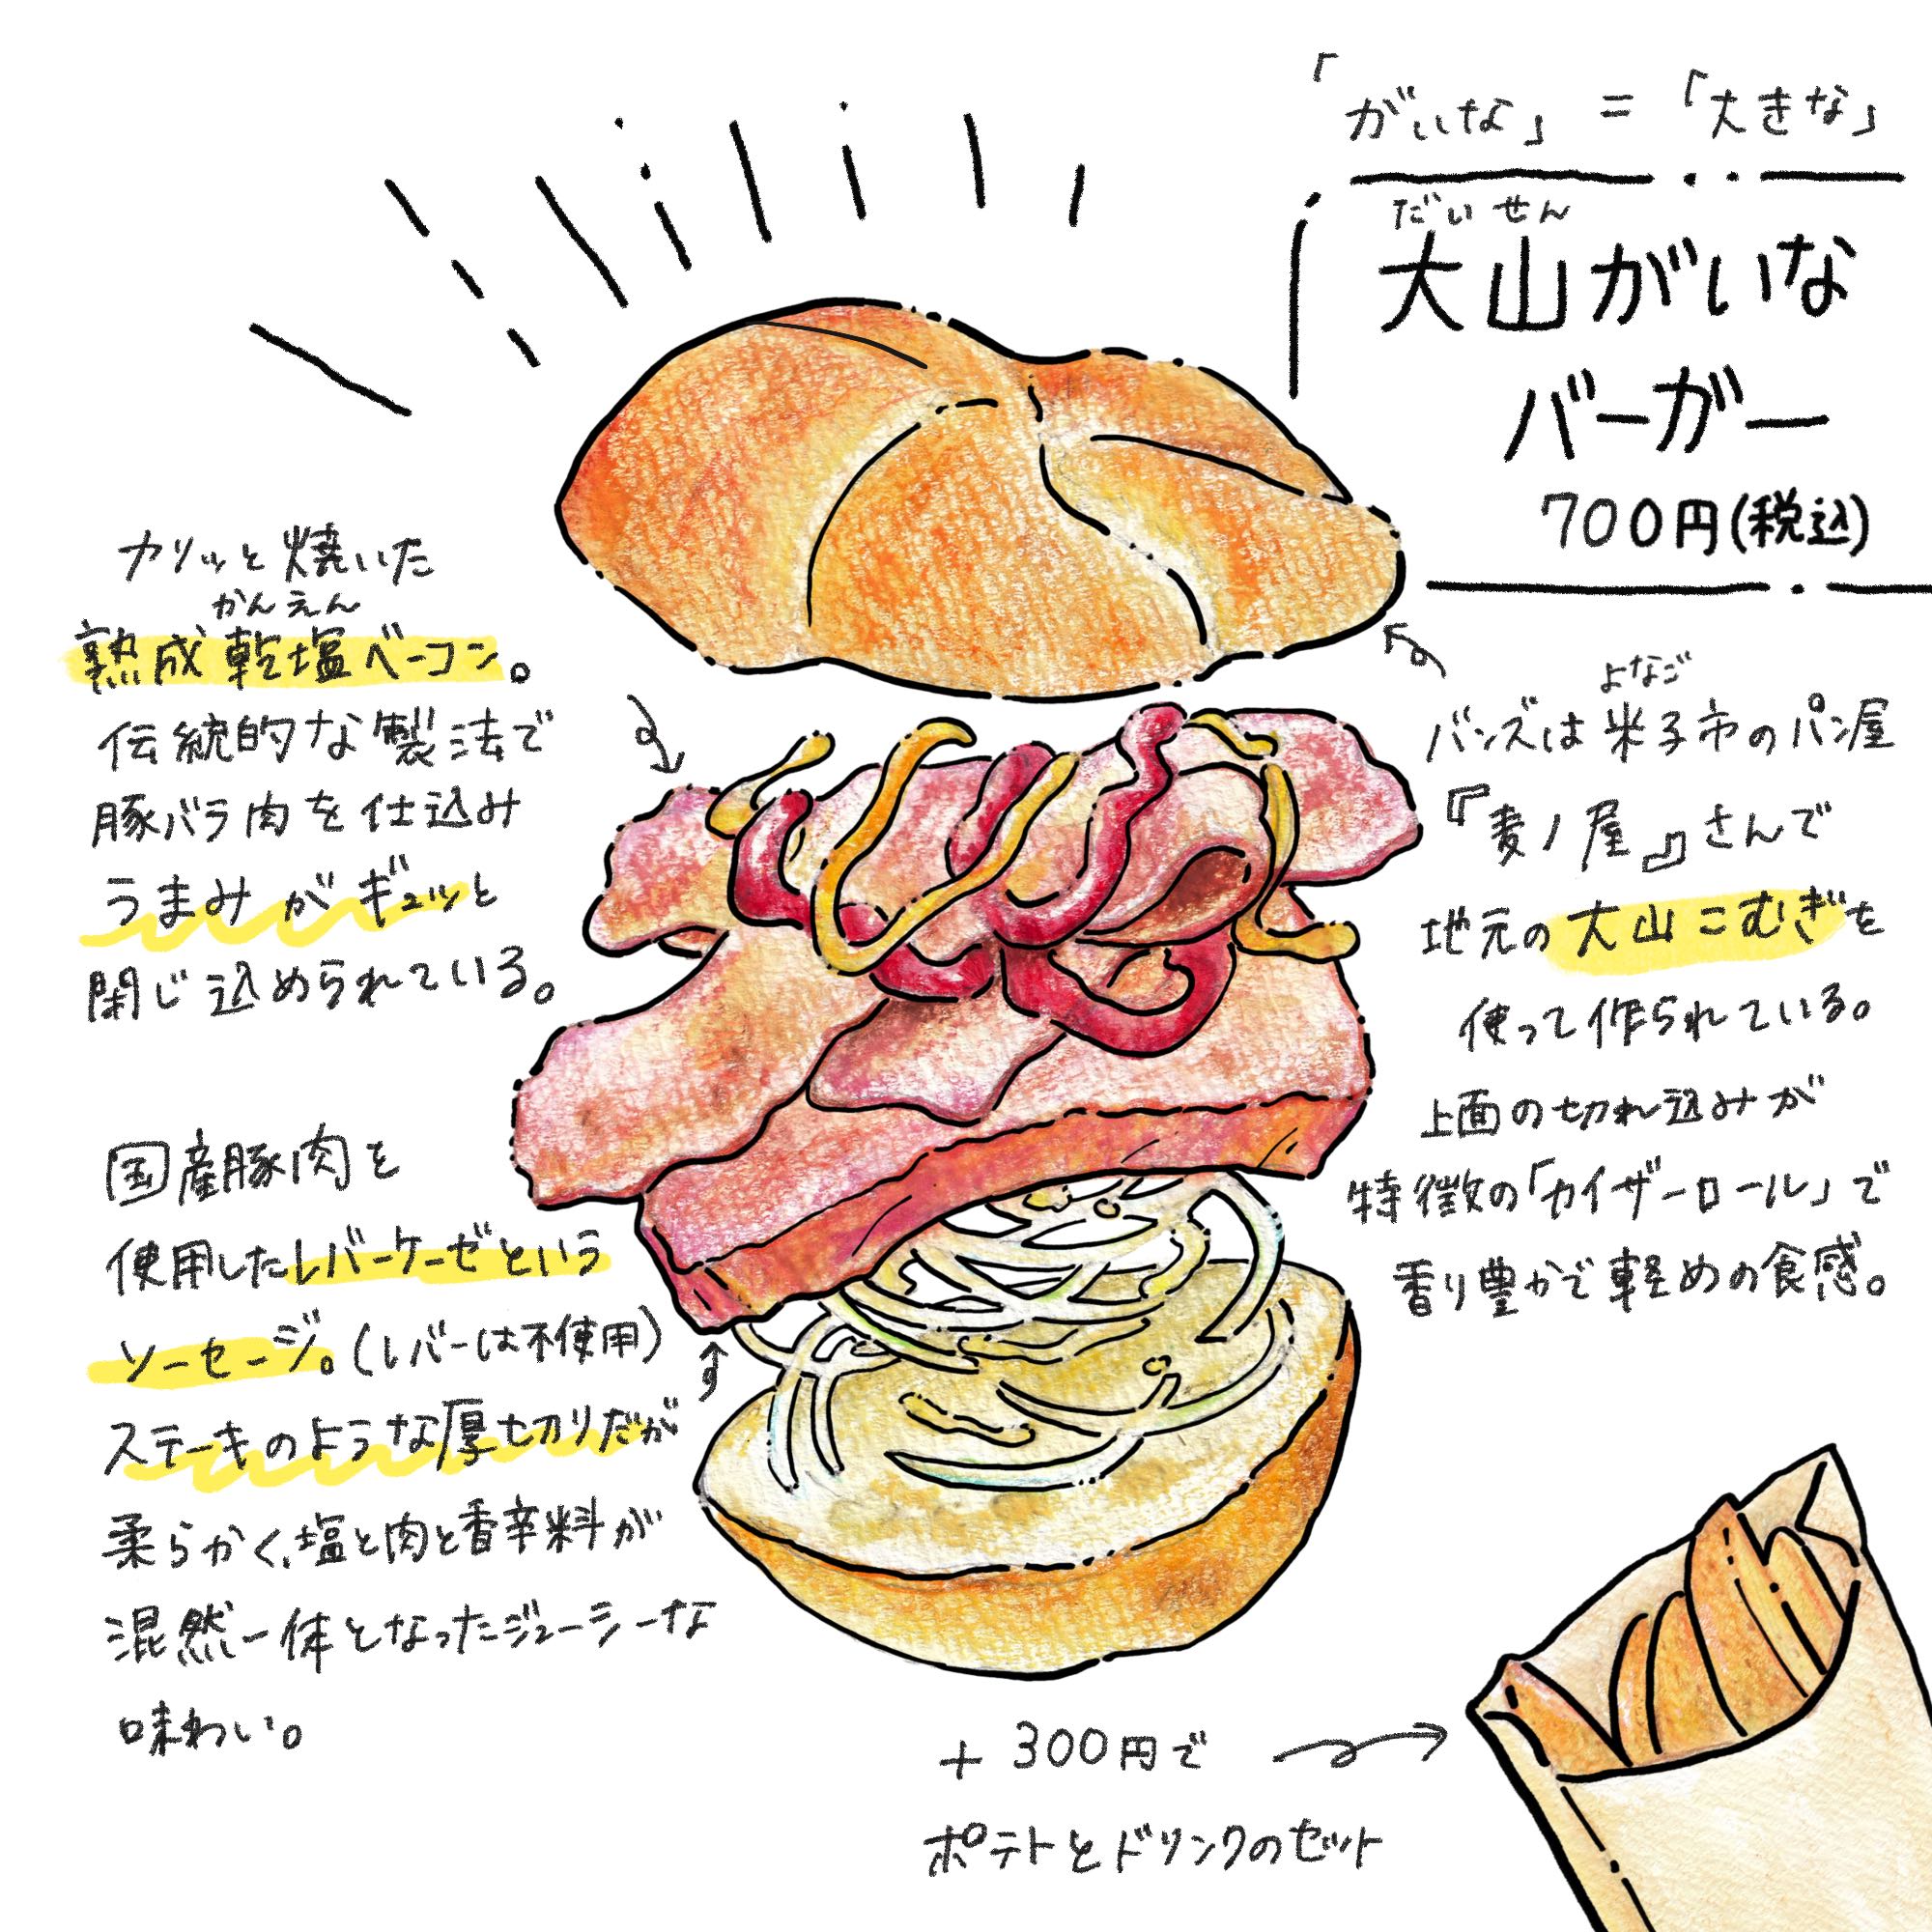 「がいな」=「大きな」
だいせん
大山がいな
バーガー
700円(税込)
カリッと焼いた
かんえん
熟成乾塩ベーコン。
伝統的な製法で
豚バラ肉を仕込み
うまみがギュッと
閉じ込められている。
国産豚肉を
使用したレバーケーゼという
ソーセージ。(レバーは不使用)
ステーキのような厚切りだが
柔らかく、塩と肉と香辛料が
混然一体となったジューシーな
味わい。
よなご
バンズは米子市のパン屋
『麦ノ屋』さんで
地元の大山こむぎを
使って作られている。
上面の切れ込みが
特徴の「カイザーロール」で
香り豊かで軽めの食感。
+300円で
ポテトとドリンクのセット